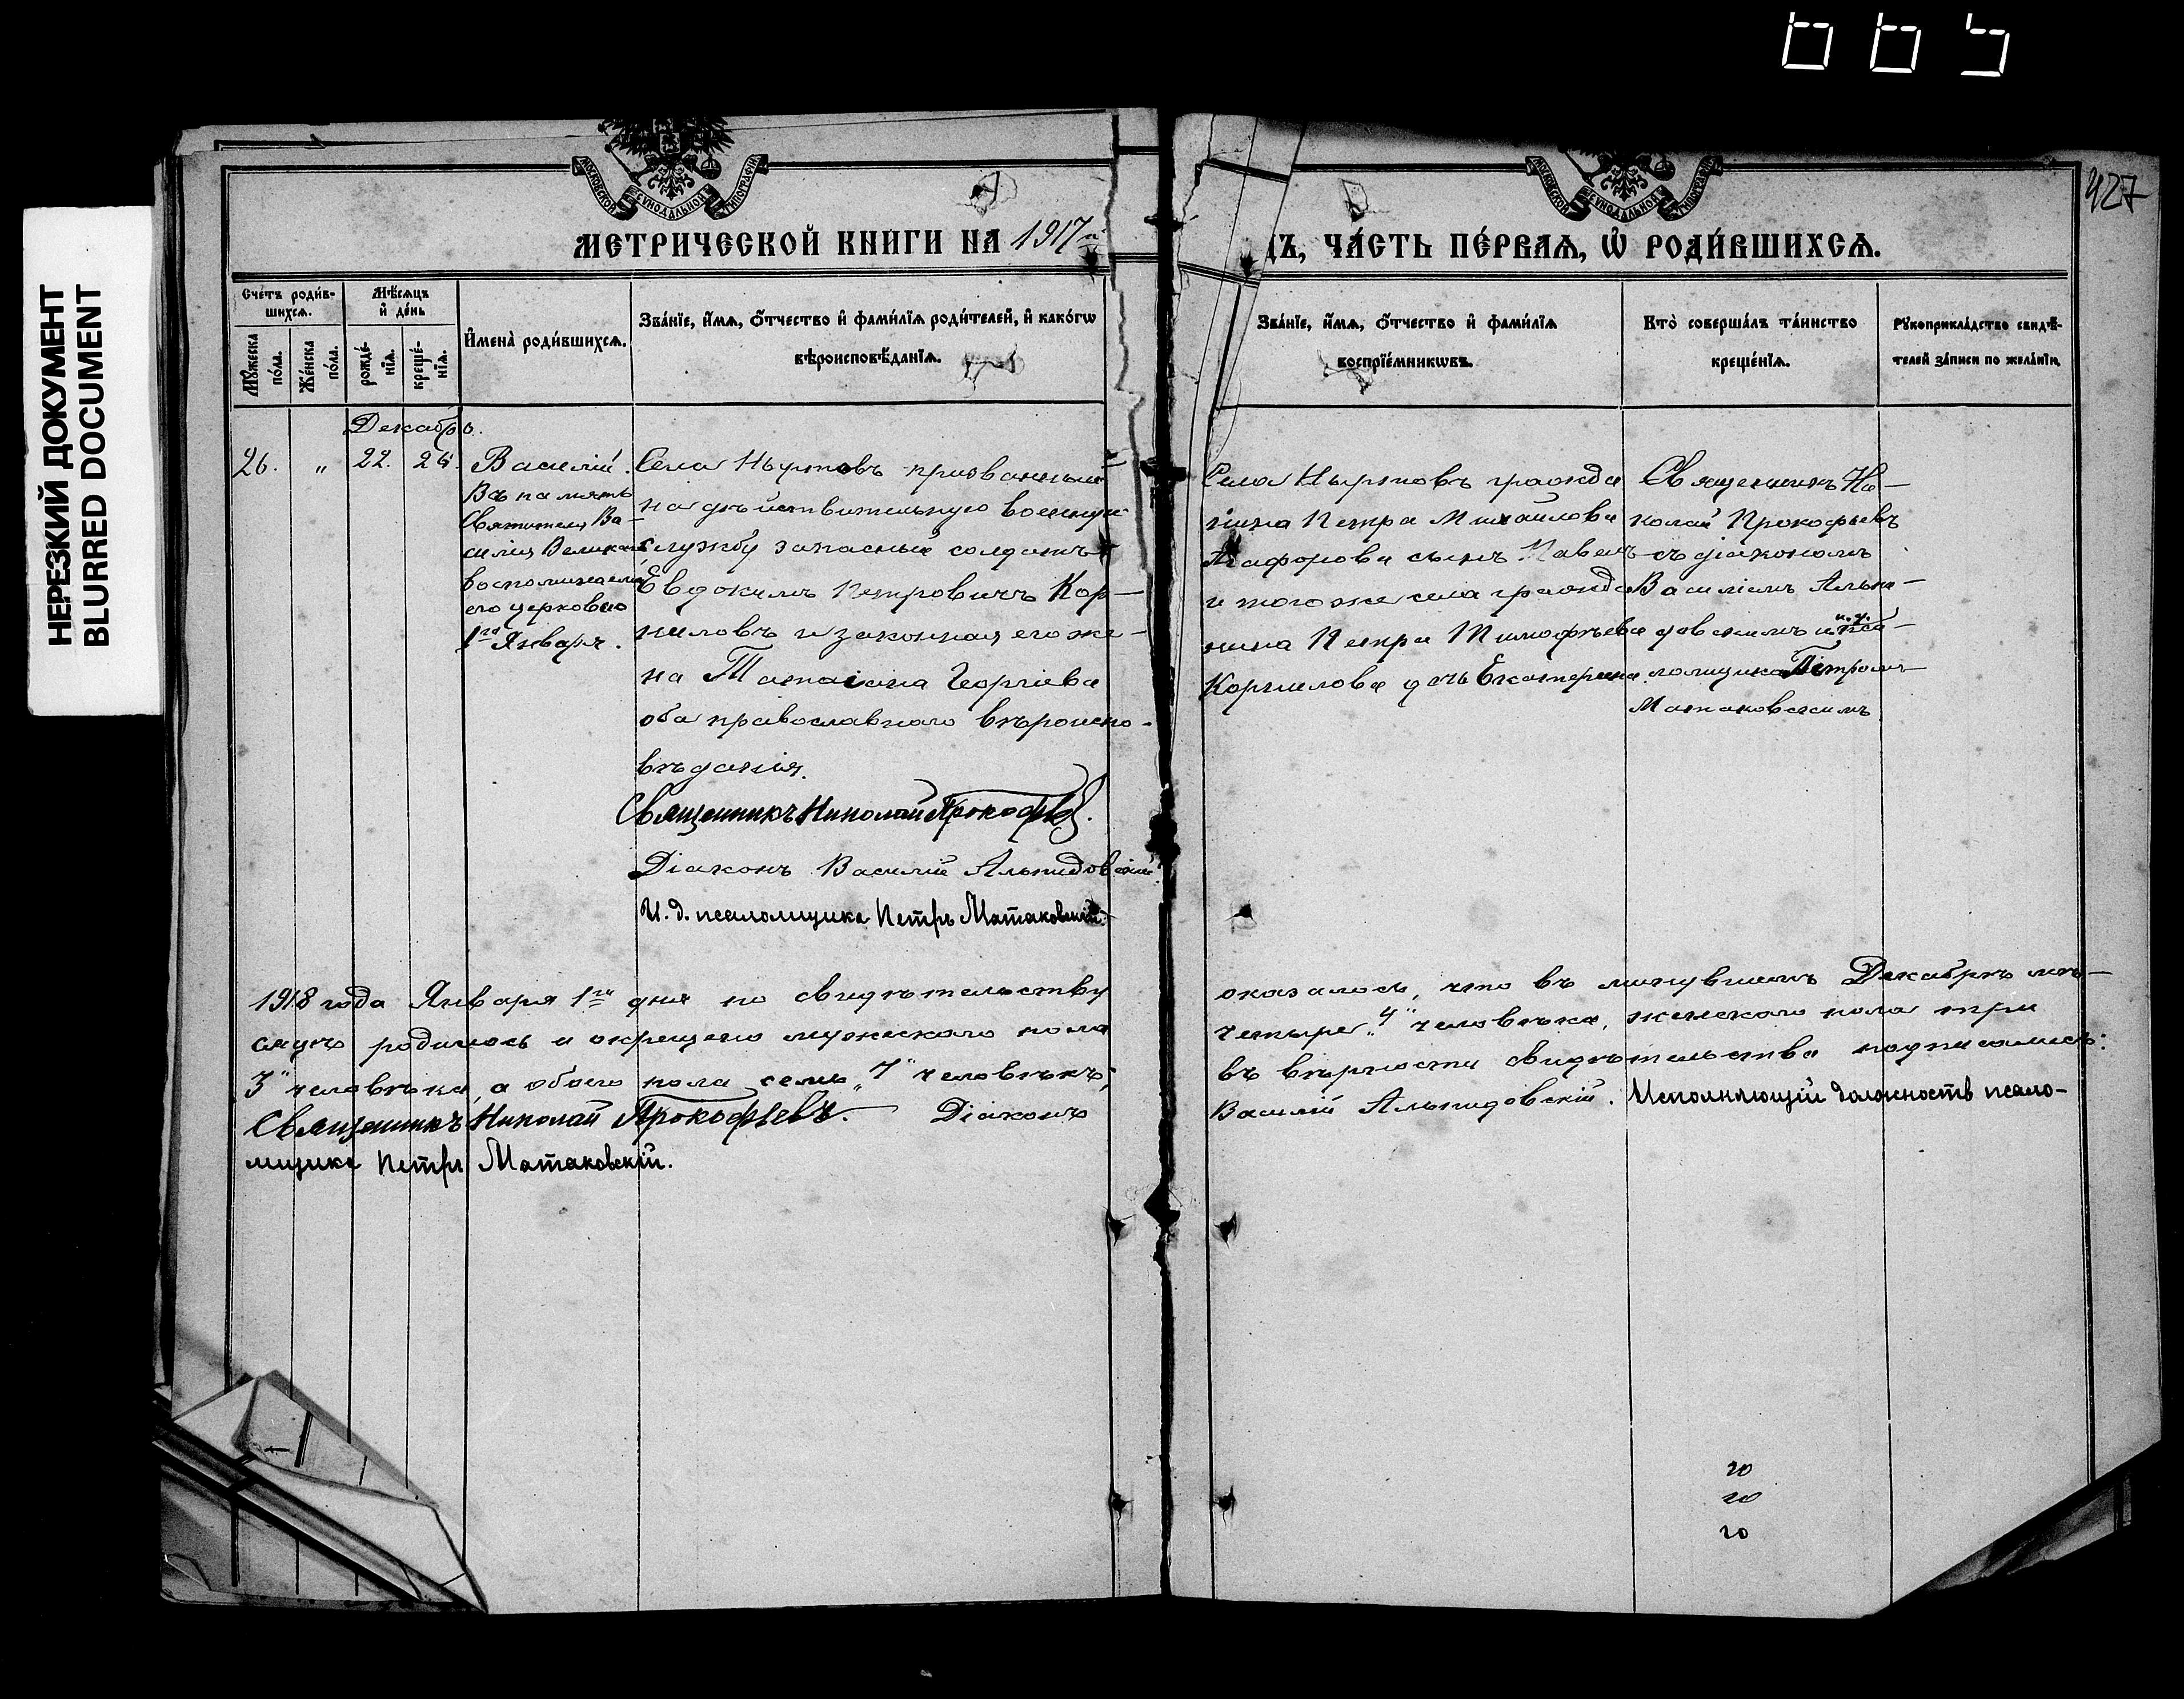 427
НЕРЕЗКИЙ ДОКУМЕНТ
BLURRED DOCUMENT
МОСКОВСКОЙ СѴНОДАЛЬНОЙ ТИПОГРАФІИ
МОСКОВСКОЙ СѴНОДАЛЬНОЙ ТИПОГРАФІИ
МЕТРИЧЕСКОЙ КНИГИ НА 1917й
ДЪ, ЧА́СТЬ ПЕ́РВАЯ, Ѡ҆ РОДИ́ВШИХСЯ.
Счетъ роди́в-
шихся.
Мꙋ́жеска по́ла.
Же́нска по́ла.
Мѣ́сяцъ
и҆ де́нь
рожде́-
нїя.
креще́-
нїя.
И҆мена̀ роди́вшихся.
Зва́нїе, и҆́мя, ѻ҆́тчество и҆ фами́лїя роди́телей, и҆ како́гѡ
вѣроисповѣ́данїя.
Зва́нїе, и҆́мя, ѻ҆́тчество и҆ фами́лїя
воспрїе́мникѡвъ.
Кто̀ соверша́лъ та́инство
креще́нїя.
Рꙋкоприкла́дство свидѣ́-
телей за́писи по жела́нїю.
Декабрь.
26. „ 22. 24.
Василій.
Въ память
Святителя Ва-
силія Великаго
воспоминаема-
его церковью
1го Января.
Села Ныртовъ призванный
на дѣйствительную военную
службу запасный солдатъ
Евдокимъ Петровичъ Кор-
ниловъ и законная его же-
на Татіана Георгіева
оба православнаго вѣроиспо-
вѣданія.
Священникъ Николай Прокофьев.
Діаконъ Василій Альпидовскій
И. д. псаломщика Петръ Матаковскій.
Села Ныртовъ гражда
нина Петра Михайлова
Агафонова сынъ Павелъ
и того же села гражда
нина Петра Тимофѣева
Корнилова дочь Екатерина.
Священникъ Ни-
колай Прокофьевъ
съ діакономъ
Василіемъ Альпи-
довскимъ и и.д. пса-
ломщика Петромъ
Матаковскимъ
1918 года Января 1го дня по свидѣтельству
оказалось, что въ минувшемъ Декабрѣ мѣ-
сяцѣ родилось и окрещено мужескаго пола
четыре „4" человѣка, женскаго пола три
3" человѣка, а обоего пола семь „7" человѣкъ;
въ вѣрности свидѣтельства подписались:
Священникъ Николай Прокофьевъ. Діаконъ
Василій Альпидовскій. Исполняющій должность псало-
мщика Петръ Матаковскій.
20
20
20